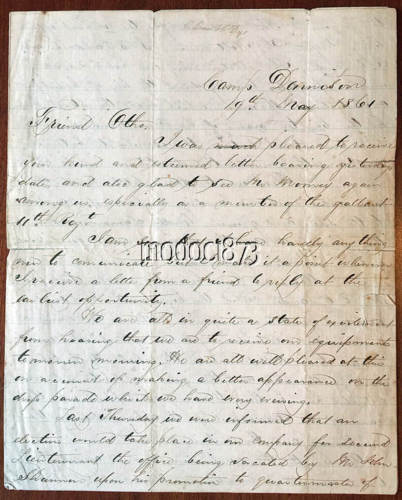 Camp Dennison
19th May 1861
Friend Otho,
I was much pleased to receive
your kind and esteemed letter bearing yesterday
date, and also glad to see Mr. again
among us, especially as a member of the gallant
11th Regt
I am hardly anything
new to comunicate but make it a point whenever
I receive a letter from a friend to reply at the
earliest opportunity.
We are all in quite a state of excitement
from hearing that we are to receive our equipments
tomorrow morning. We are all well pleased at this
on account of making a better appearance on the
dress parade which we have every evening.
Last Thursday we were informed that an
election would take place in our company for second
Lieutenant the office being vacated by Mr. John
upon his promotion to quartermaster of
modoc1873